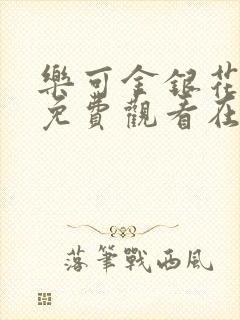 樂可金銀花
免費觀看在
落筆戰西風